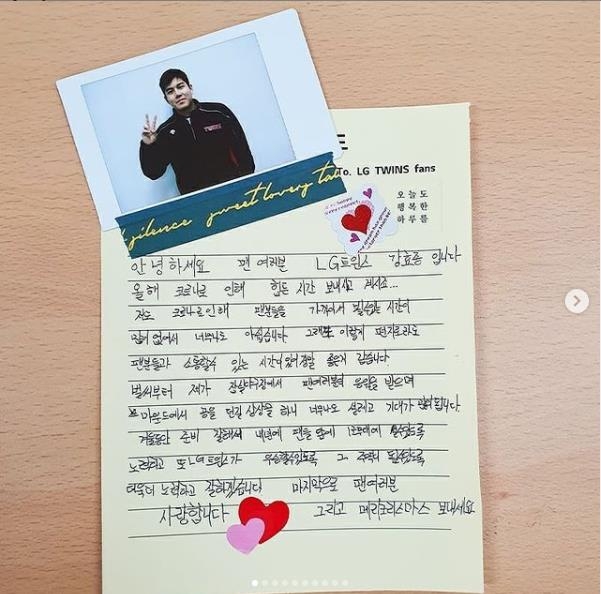 silence sweet lovery
To. LG TWINS fans
오늘도
행복한
하루를
안녕하세요 팬 여러분 LG트윈스 강효종 입니다
올해 코로나로 인해 힘든 시간 보내시고 계시죠...
저도 코로나로 인해 팬분들을 가까이서 뵐수있는 시간이
많이 없어서 너무나도 아쉽습니다 그래도 이렇게 편지로라도
팬분들과 소통할수 있는 시간이 있어 정말 좋은거 같습니다.
벌써부터 제가 잠실야구장에서 팬여러분의 응원을 받으며
마운드에서 공을 던질 상상을 하니 너무나도 설레고 기대가 많이 됩니다.
겨울동안 준비 잘해서 내년에 팬들 앞에 1군무대에 설수있도록
노력하고 또 LG트윈스가 우승할수있도록 그 주역이 될수있도록
더욱더 노력하고 잘하겠습니다 마지막으로 팬여러분
사랑합니다 그리고 메리크리스마스 보내세요